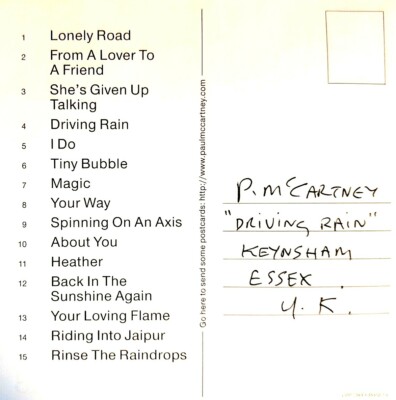 1 Lonely Road
2 From A Lover To
A Friend
3 She's Given Up
Talking
4 Driving Rain
5 I Do
6 Tiny Bubble
7 Magic
8 Your Way
9 Spinning On An Axis
10 About You
11 Heather
12 Back In The
Sunshine Again
13 Your Loving Flame
14 Riding Into Jaipur
15 Rinse The Raindrops
Go here to send some postcards: http://www.paulmccartney.com
P. McCARTNEY
"DRIVING RAIN"
KEYNSHAM
ESSEX.
U.K.